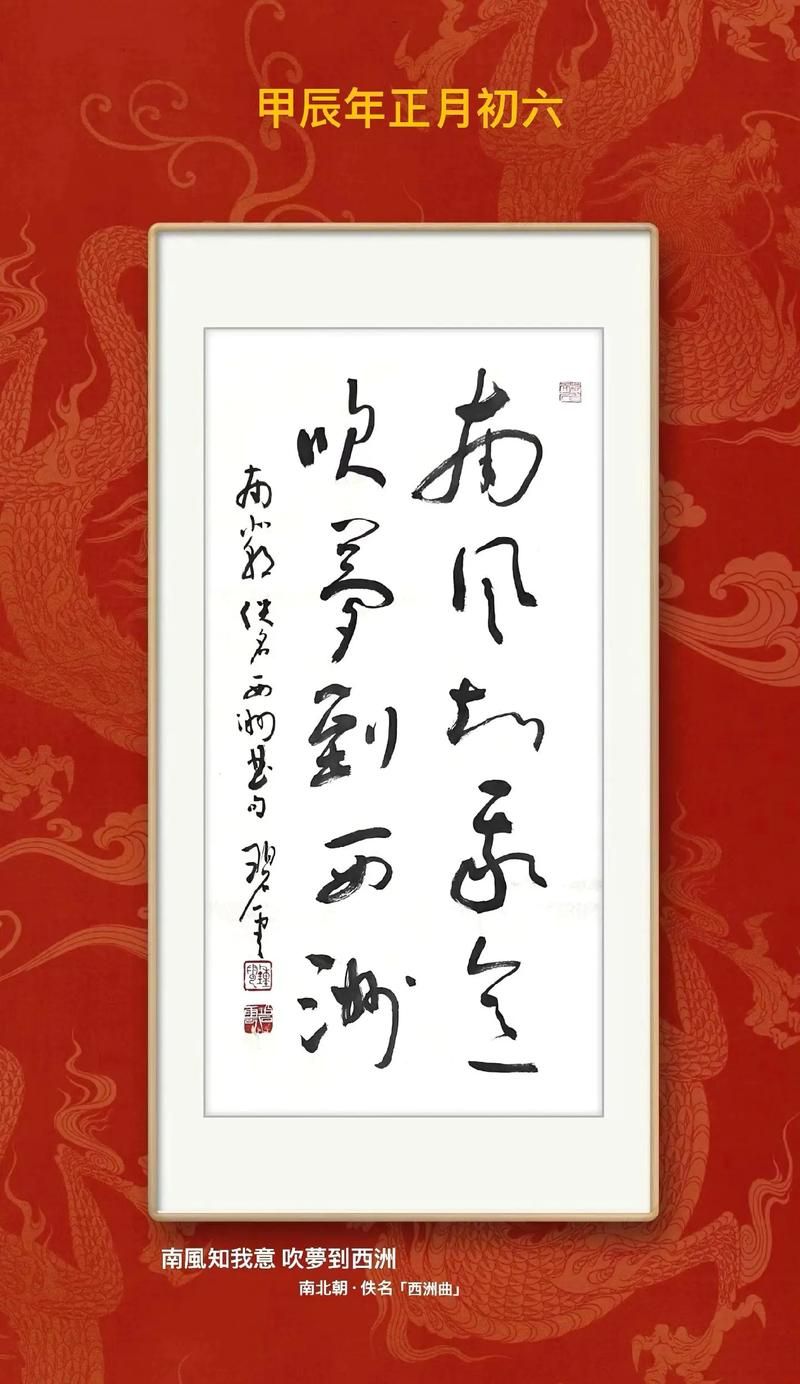 甲辰年正月初六
南風知我意
吹夢到西洲
南北朝佚名西洲曲句 碧雲
南風知我意 吹夢到西洲
南北朝·佚名「西洲曲」